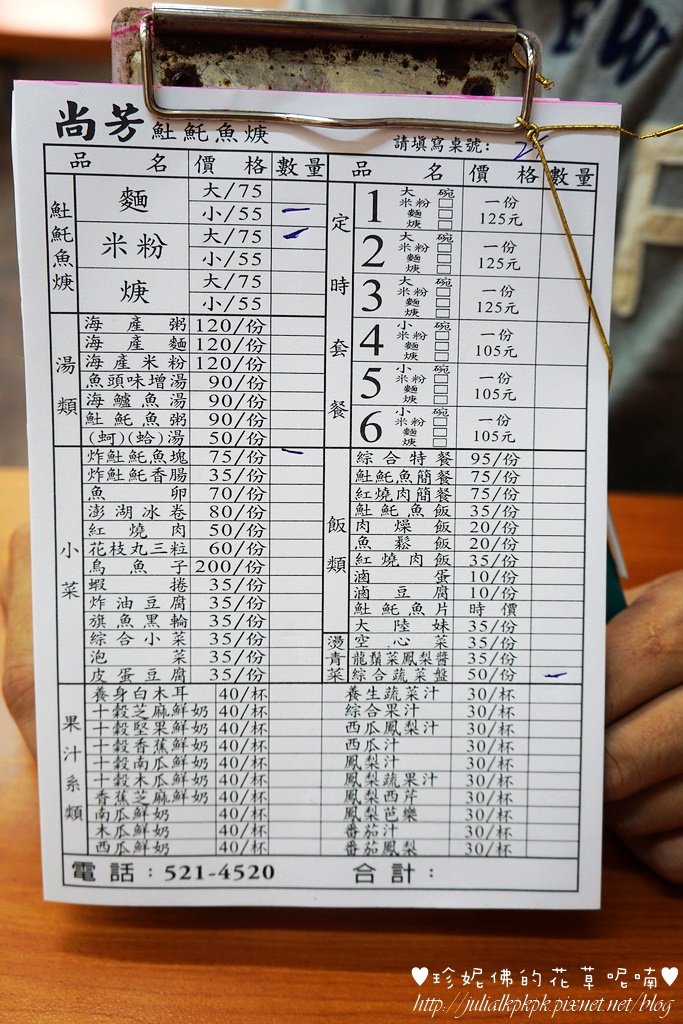 尚芳 𩵚魠魚焿 請填寫桌號：
品名 價格 數量 品名 價格 數量
𩵚魠魚焿
麵 大/75
小/55 一
米粉 大/75
小/55
焿 大/75
小/55
湯類
海產粥 120/份
海產麵 120/份
海產米粉 120/份
魚頭味增湯 90/份
海鱸魚湯 90/份
𩵚魠魚粥 90/份
(蚵)(蛤)湯 50/份
小菜
炸𩵚魠魚塊 75/份 一
炸𩵚魠香腸 35/份
魚卵 70/份
澎湖冰卷 80/份
紅燒肉 50/份
花枝丸三粒 60/份
烏魚子 200/份
蝦捲 35/份
炸油豆腐 35/份
旗魚黑輪 35/份
綜合小菜 35/份
泡菜 35/份
皮蛋豆腐 35/份
定時套餐
1 大碗 米粉□ 麵□ 焿□ 一份 125元
2 大碗 米粉□ 麵□ 焿□ 一份 125元
3 大碗 米粉□ 麵□ 焿□ 一份 125元
4 小碗 米粉□ 麵□ 焿□ 一份 105元
5 小碗 米粉□ 麵□ 焿□ 一份 105元
6 小碗 米粉□ 麵□ 焿□ 一份 105元
飯類
綜合特餐 95/份
𩵚魠魚簡餐 75/份
紅燒肉簡餐 75/份
𩵚魠魚飯 35/份
肉燥飯 20/份
魚鬆飯 20/份
紅燒肉飯 35/份
滷蛋 10/份
滷豆腐 10/份
𩵚魠魚片 時價
燙青菜
大陸妹 35/份
空心菜 35/份
龍鬚菜鳳梨醬 35/份
綜合蔬菜盤 50/份 一
果汁系類
養身白木耳 40/杯 養生蔬菜汁 30/杯
十穀芝麻鮮奶 40/杯 綜合果汁 30/杯
十穀堅果鮮奶 40/杯 西瓜鳳梨汁 30/杯
十穀香蕉鮮奶 40/杯 西瓜汁 30/杯
十穀南瓜鮮奶 40/杯 鳳梨汁 30/杯
十穀木瓜鮮奶 40/杯 鳳梨蔬果汁 30/杯
香蕉芝麻鮮奶 40/杯 鳳梨西芹 30/杯
南瓜鮮奶 40/杯 鳳梨芭樂 30/杯
木瓜鮮奶 40/杯 番茄汁 30/杯
西瓜鮮奶 40/杯 番茄鳳梨 30/杯
電話：521-4520 合計：
♥珍妮佛的花草呢喃♥
http://julialkpkpk.pixnet.net/blog